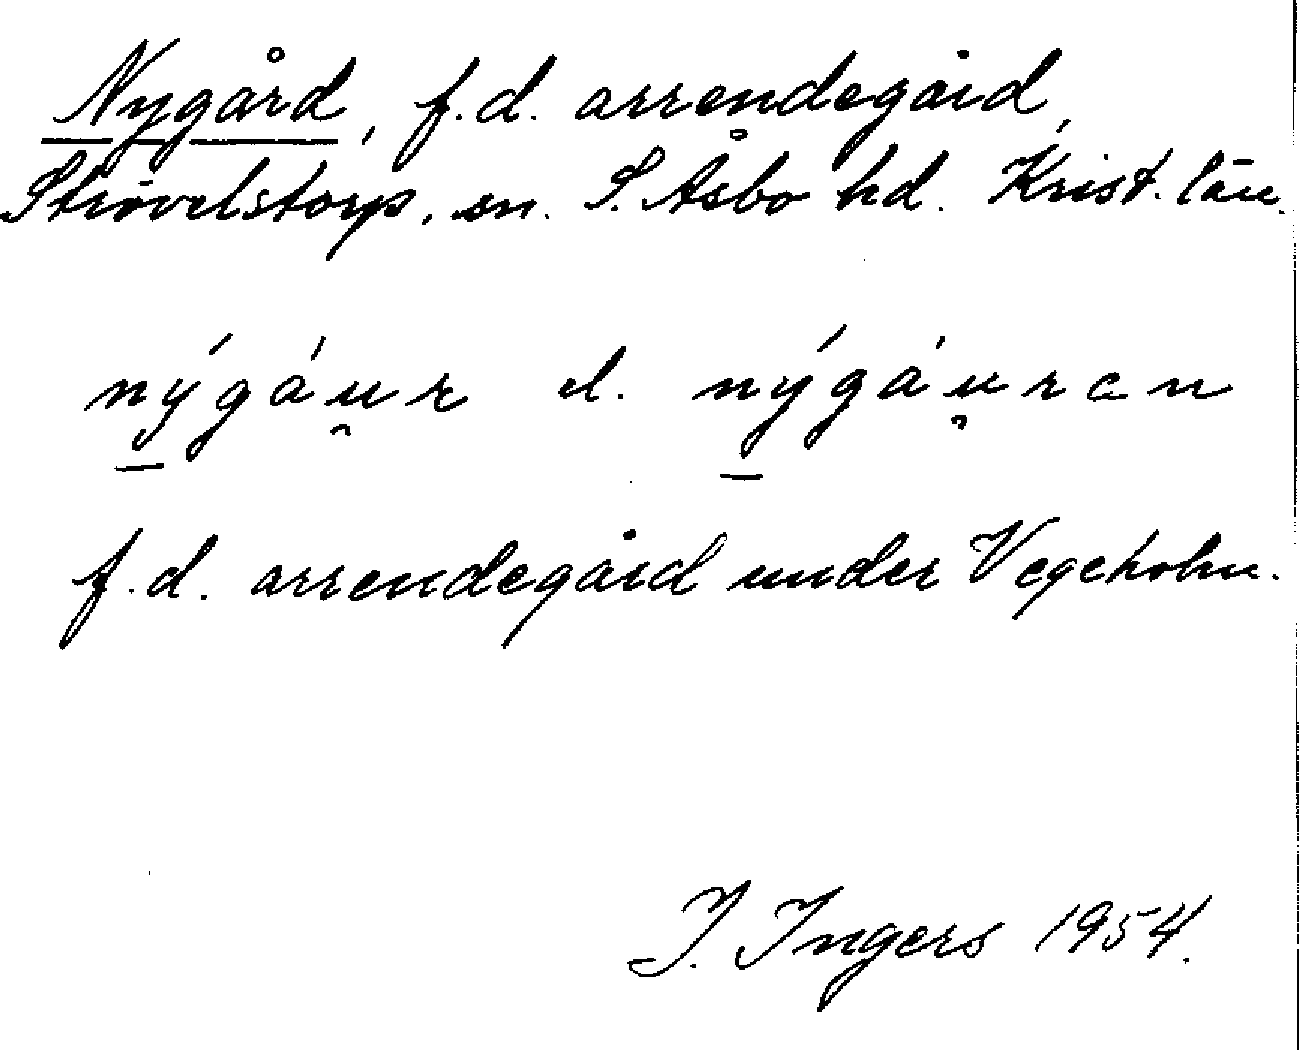 Nygård, f.d. arrendegård,
Strövelstorp, sn. S. Åsbo hd. Krist. län.
ný̠gáu̯r el. ný̠gáu̯ran
f.d. arrendegård under Vegeholm.
I. Ingers 1954.